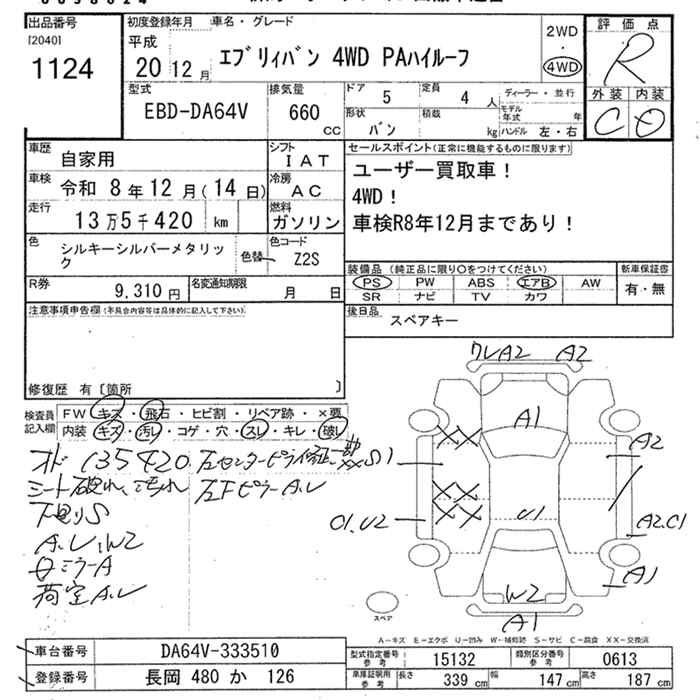 出品番号
[2040]
1124
初度登録年月 車名・グレード
平成
20 12 月
エブリィバン 4WD PAハイルーフ
2WD
・
4WD
評価点
R
外装 内装
C D
型式
EBD-DA64V
排気量
660
CC
ドア
5
定員
4 人
ディーラー・並行
モデル
年式 年
形状
バン
積載
kg
ハンドル 左・右
車歴
自家用
シフト
IAT
車検
令和 8年12月(14日)
冷房
AC
走行
13万5千420 km
燃料
ガソリン
セールスポイント(正常に機能するものに限ります)
ユーザー買取車！
4WD！
車検R8年12月まであり！
色
シルキーシルバーメタリッ
ク
色替
色コード
Z2S
R券
9,310円
名変通知期限
月 日
装備品 (純正品に限り○をつけてください)
PS PW ABS エアB AW
SR ナビ TV カワ
新車保証書
有・無
注意事項申告欄(不具合内容等は具体的に記入して下さい)
後日品
スペアキー
修復歴 有〔箇所 〕
検査員
記入欄
FW キズ・飛石・ヒビ割・リペア跡・×要
内装 キズ・汚レ・コゲ・穴・スレ・キレ・破レ
オド 135420
シート破れ、汚れ 左Fピラー A.U
下見りS
A.U.W2
ミラーA
荷室 A.U
ワレA2 A2
A1
XX
XXS1
A2
XX
XX
U1
C1.U2
A2.C1
A1
W2
A1
スペア
A－キズ E－エクボ U－凹み W－補修跡 S－サビ C－腐食 XX－交換済
車台番号
DA64V-333510
登録番号
長岡 480 か 126
型式指定番号
参考
15132
類別区分番号
参考
0613
車庫証明用
参考
長さ 339 cm 幅 147 cm 高さ 187 cm